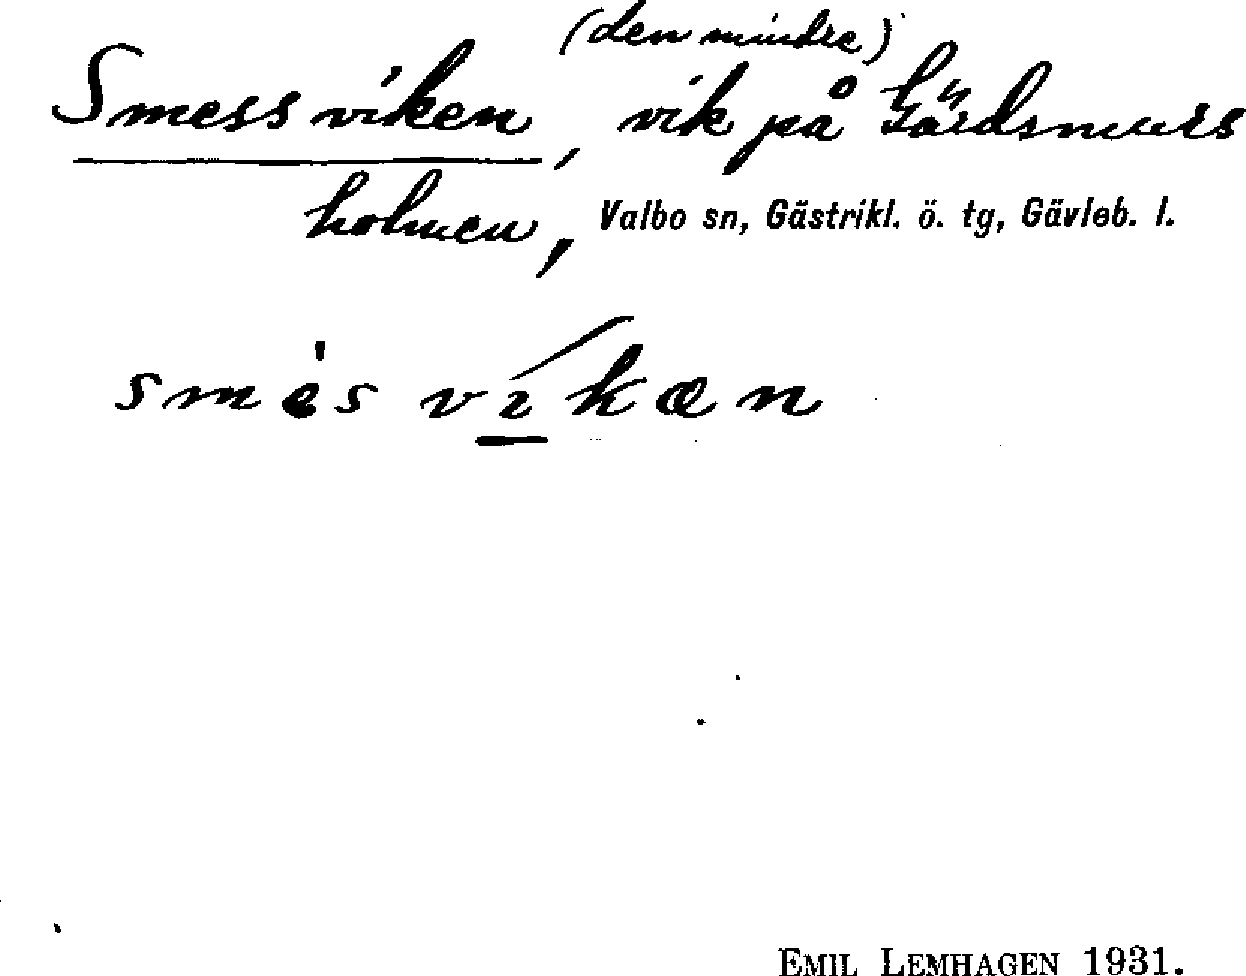 (den mindre)
Smessviken, vik på Gärdsmurs
holmen, Valbo sn, Gästrikl. ö. tg, Gävleb. l.
smès víkæn
EMIL LEMHAGEN 1931.